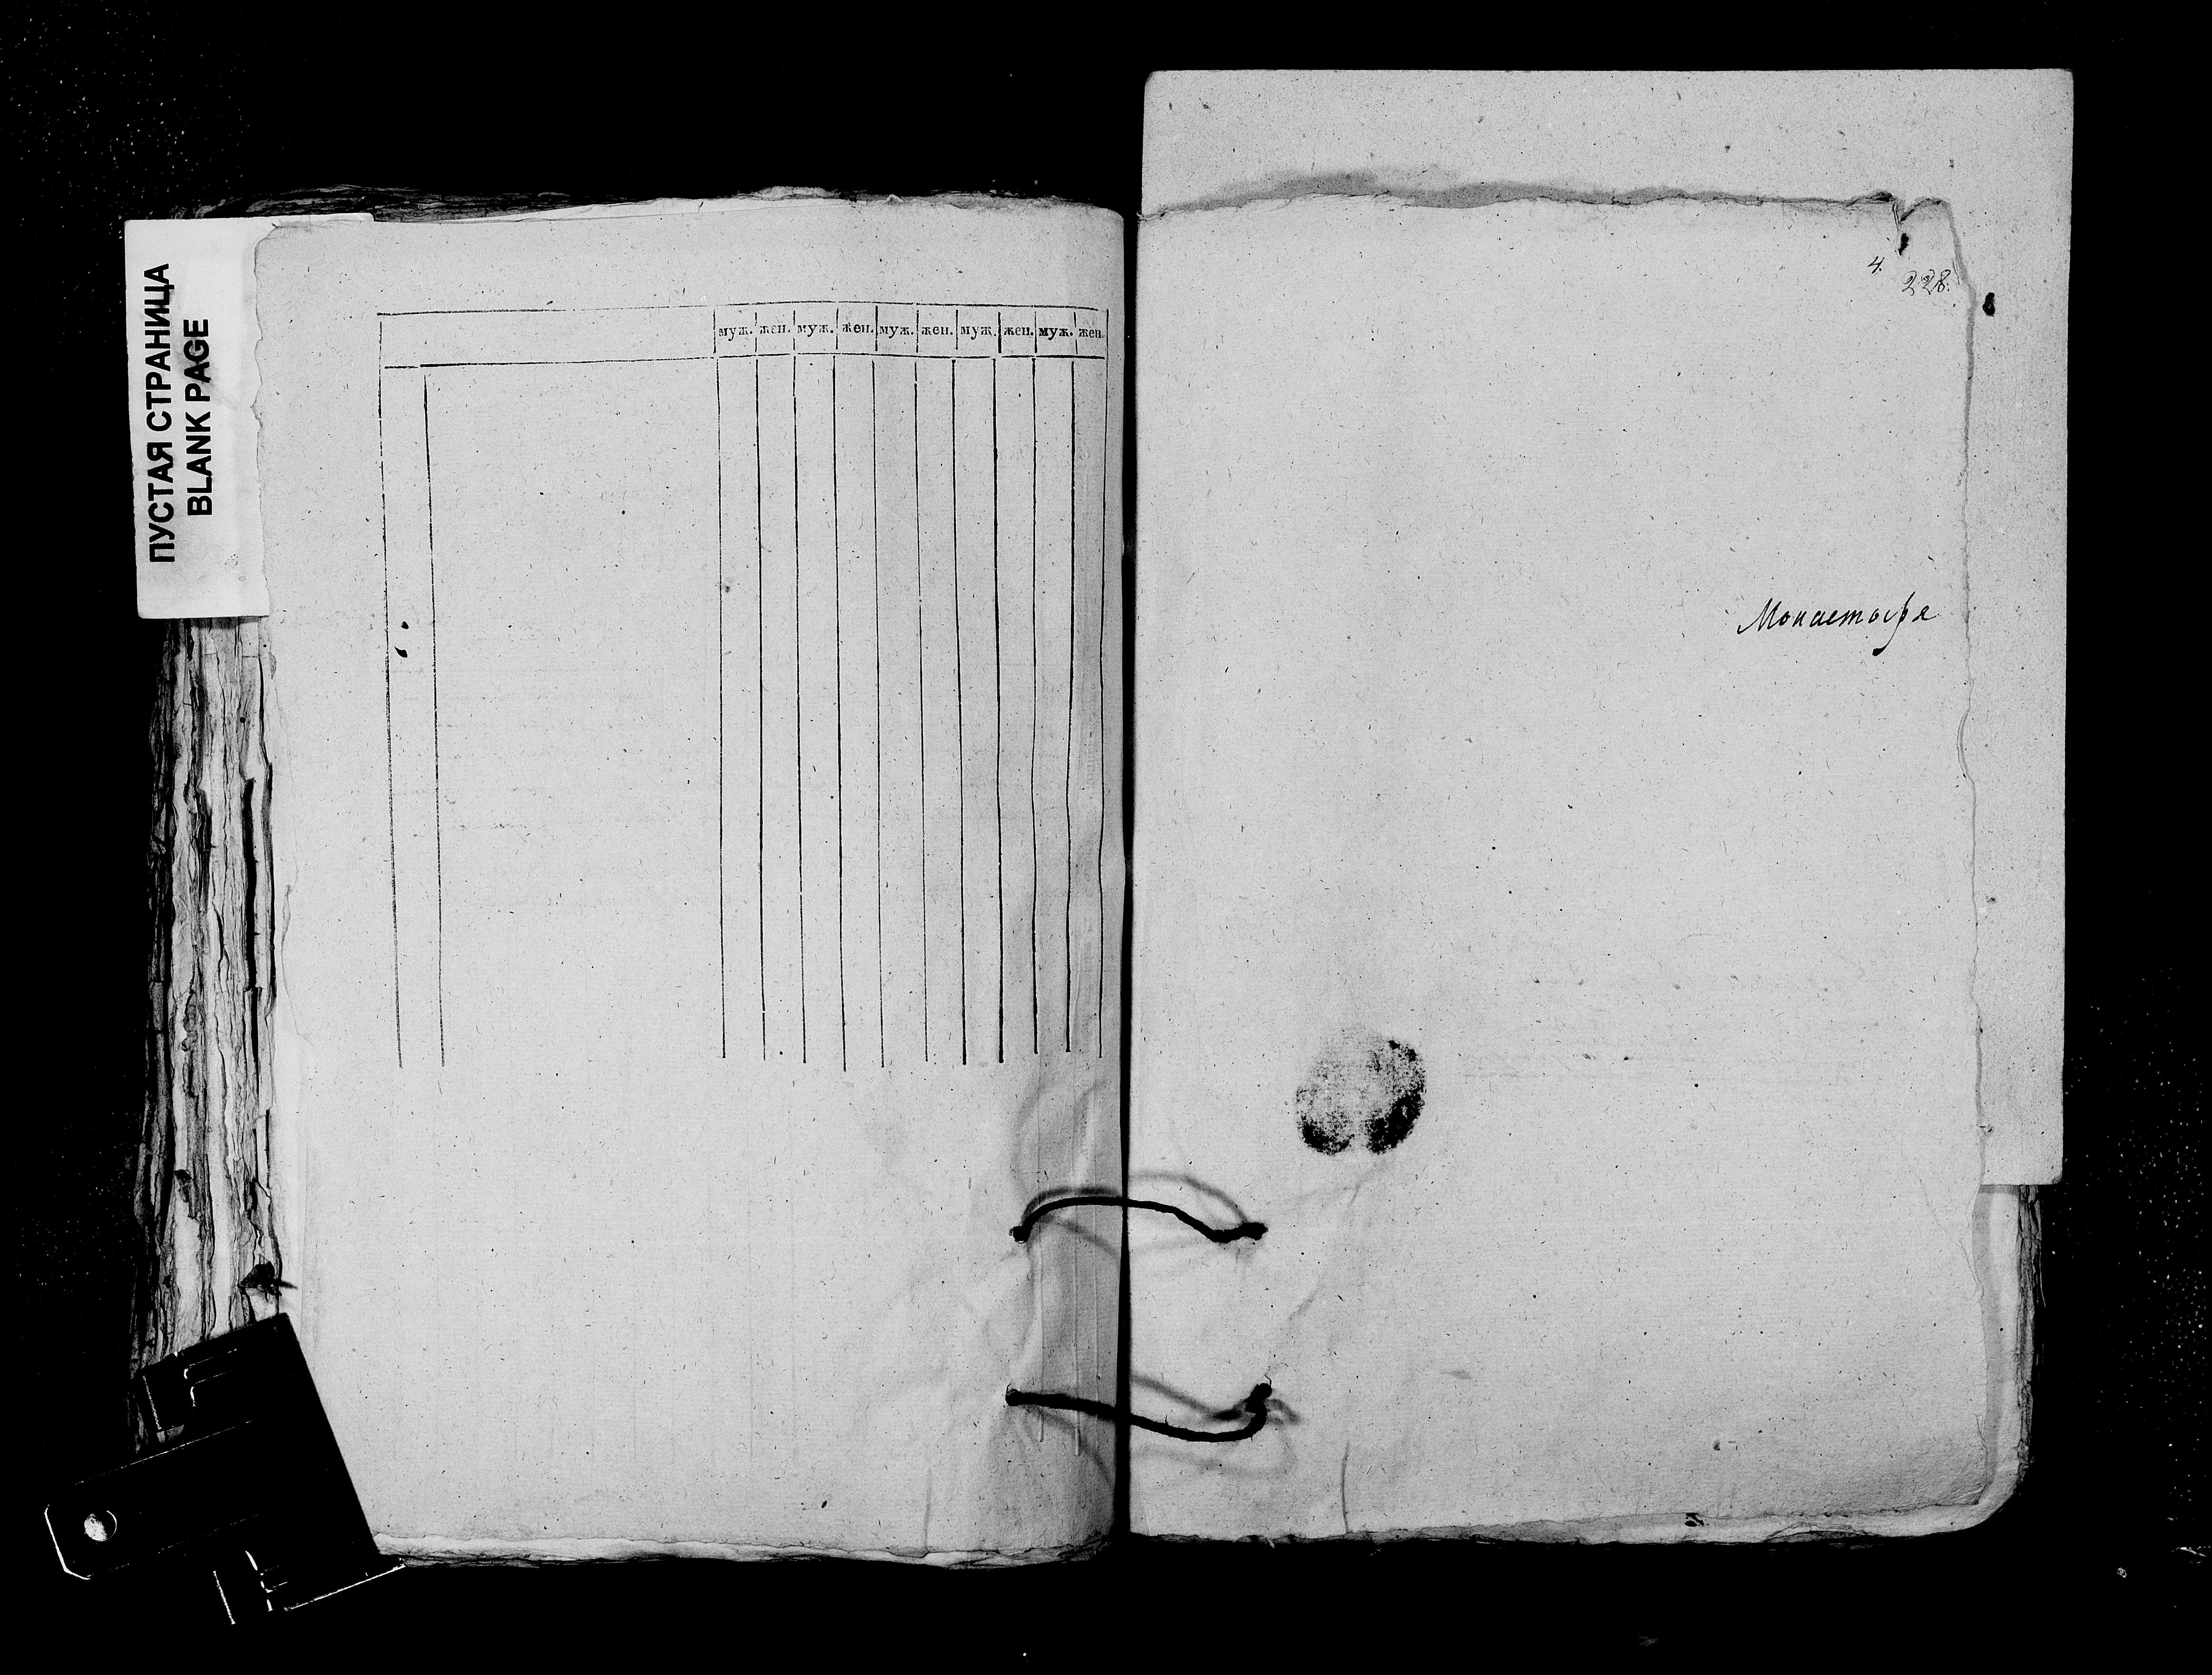 ПУСТАЯ СТРАНИЦА
BLANK PAGE
муж. жен. муж. жен. муж. жен. муж. жен. муж. жен.
4.
228.